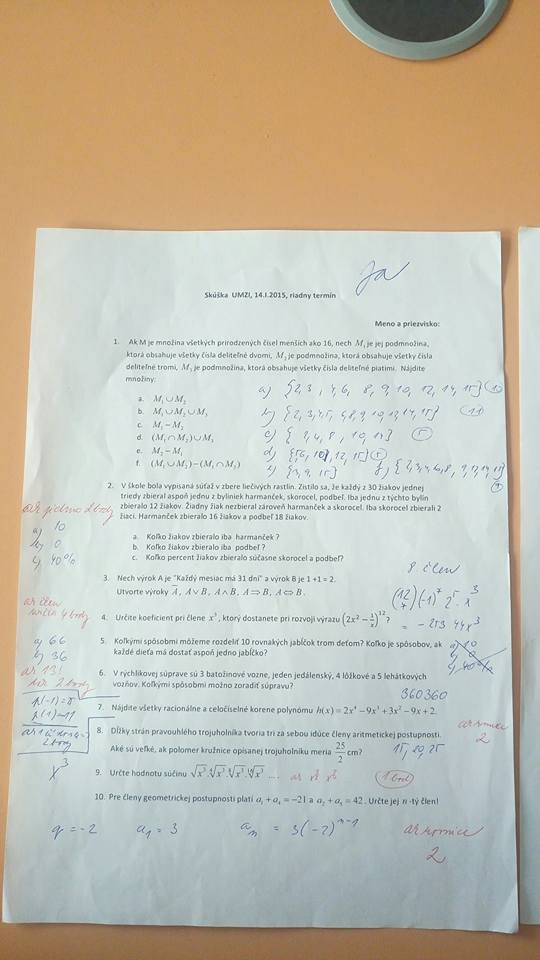 Ja
Skúška UMZI, 14.I.2015, riadny termín
Meno a priezvisko:
1. Ak M je množina všetkých prirodzených čísel menších ako 16, nech M₁ je jej podmnožina,
ktorá obsahuje všetky čísla deliteľné dvomi, M₂ je podmnožina, ktorá obsahuje všetky čísla
deliteľné tromi, M₃ je podmnožina, ktorá obsahuje všetky čísla deliteľné piatimi. Nájdite
množiny:
a) {2,3,4,6, 8,9,10, 12,14,15} 10
a. M₁∪M₂
b) {2,3,4,5, 6,8,9,10,12,14,15} 11
b. M₁∪M₂∪M₃
c. M₁−M₂
c) {2,4,8, 10,14} 5
d. (M₁∩M₂)∪M₃
d) {5,6,10,12,15} 5
e. M₂−M₁
e) {3,9,15}
f. (M₁∪M₂)−(M₁∩M₂)
2. V škole bola vypísaná súťaž v zbere liečivých rastlín. Zistilo sa, že každý z 30 žiakov jednej
triedy zbieral aspoň jednu z byliniek harmanček, skorocel, podbeľ. Iba jednu z týchto bylín
zbieralo 12 žiakov. Žiadny žiak nezbieral zároveň harmanček a skorocel. Iba skorocel zbierali 2
žiaci. Harmanček zbieralo 16 žiakov a podbeľ 18 žiakov.
a) 10
b) 0
c) 40%
a. Koľko žiakov zbieralo iba harmanček ?
b. Koľko žiakov zbieralo iba podbeľ ?
c. Koľko percent žiakov zbieralo súčasne skorocel a podbeľ?
8 člen
3. Nech výrok A je "Každý mesiac má 31 dní" a výrok B je 1+1 = 2.
Utvorte výroky A̅, A∨B, A∧B, A⇒B, A⇔B.
4. Určite koeficient pri člene x³, ktorý dostanete pri rozvoji výrazu (2x² − 1/x)¹²?
= −25344x³
5. Koľkými spôsobmi môžeme rozdeliť 10 rovnakých jabĺčok trom deťom? Koľko je spôsobov, ak
každé dieťa má dostať aspoň jedno jabĺčko?
a) 66
b) 36
a) 10
b) 0
c) 40%
6. V rýchlikovej súprave sú 3 batožinové vozne, jeden jedálenský, 4 lôžkové a 5 lehátkových
vozňov. Koľkými spôsobmi možno zoradiť súpravu?
360360
7. Nájdite všetky racionálne a celočíselné korene polynómu h(x) = 2x⁴ − 9x³ + 3x² − 9x + 2.
8. Dĺžky strán pravouhlého trojuholníka tvoria tri za sebou idúce členy aritmetickej postupnosti.
Aké sú veľké, ak polomer kružnice opísanej trojuholníku meria 25/2 cm?
15, 20, 25
2
9. Určte hodnotu súčinu
x³
10. Pre členy geometrickej postupnosti platí a₁ + a₄ = −21 a a₂ + a₅ = 42. Určte jej n-tý člen!
q = −2 a₁ = 3 aₙ = 3(−2)ⁿ⁻¹
2